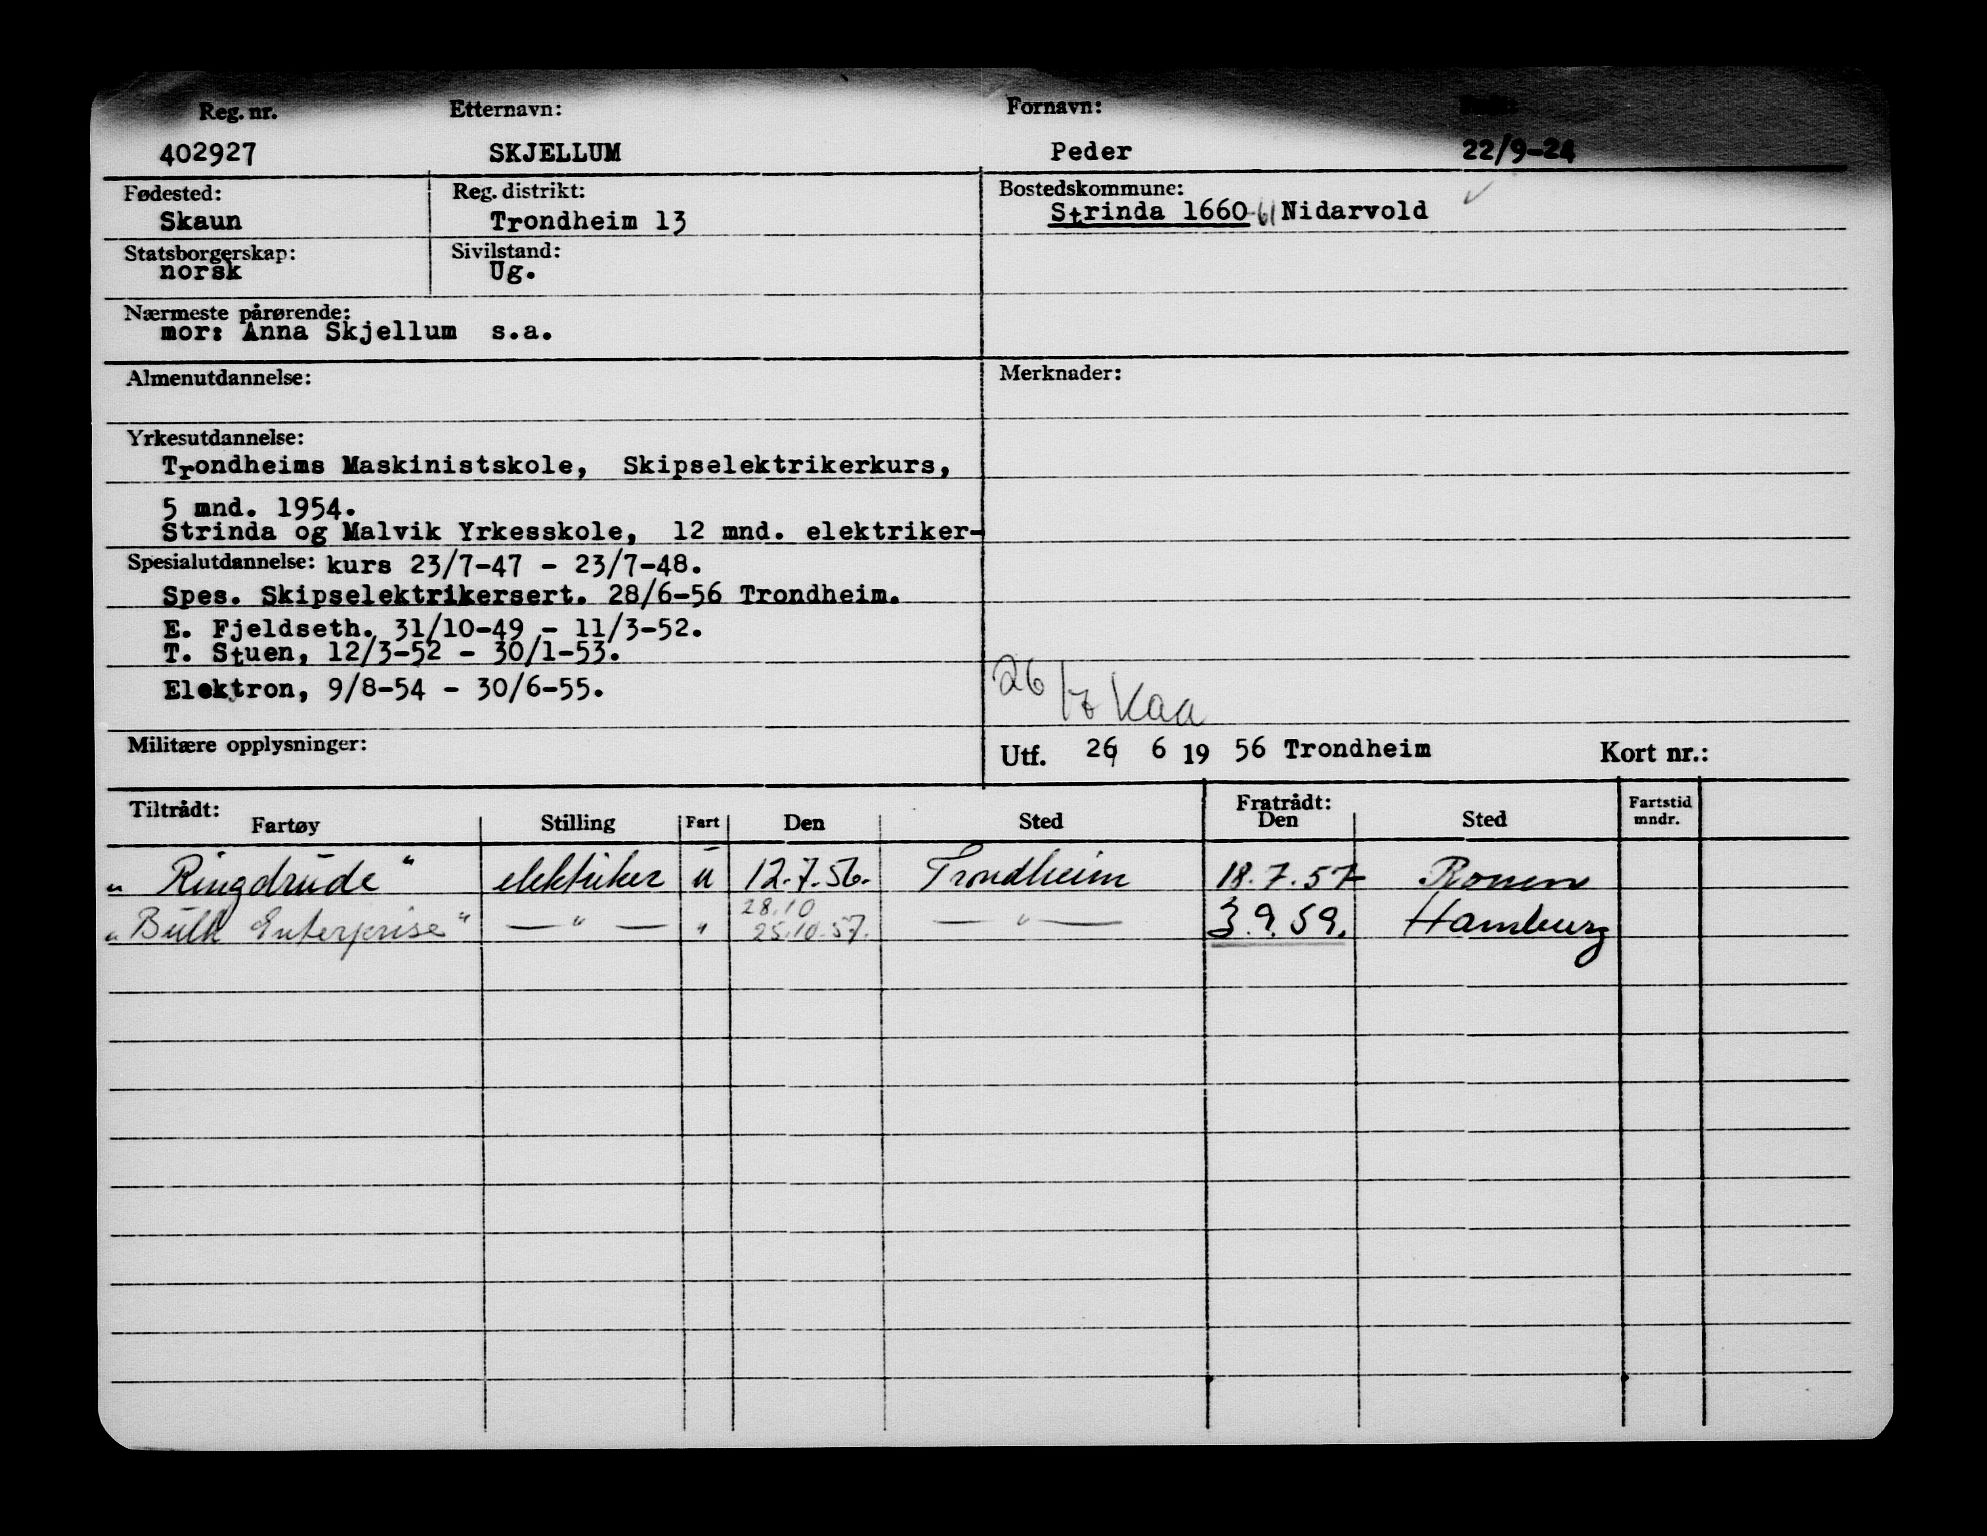 Reg. nr. Etternavn: Fornavn:
402927 SKJELLUM Peder 22/9-24
Fødested: Reg. distrikt: Bostedskommune:
Skaun Trondheim 13 Strinda 1660-61 Nidarvold
Statsborgerskap: Sivilstand:
norsk Ug.
Nærmeste pårørende:
mor: Anna Skjellum s.a.
Almenutdannelse: Merknader:
Yrkesutdannelse:
Trondheims Maskinistskole, Skipselektrikerkurs,
5 mnd. 1954.
Strinda og Malvik Yrkesskole, 12 mnd. elektriker-
Spesialutdannelse: kurs 23/7-47 - 23/7-48.
Spes. Skipselektrikersert. 28/6-56 Trondheim.
E. Fjeldseth. 31/10-49 - 11/3-52.
T. Stuen, 12/3-52 - 30/1-53.
Elektron, 9/8-54 - 30/6-55.
26/7 Kaa
Militære opplysninger: Utf. 26 6 19 56 Trondheim Kort nr.:
Tiltrådt: Fratrådt:
Fartøy Stilling Fart Den Sted Den Sted Fartstid mndr.
" Ringdrude " elektriker u 12.7.56. Trondheim 18.7.57 Rouen
28.10
" Bulk Enterprise " — " — " 25.10.57. — " — 3.9.59. Hamburg